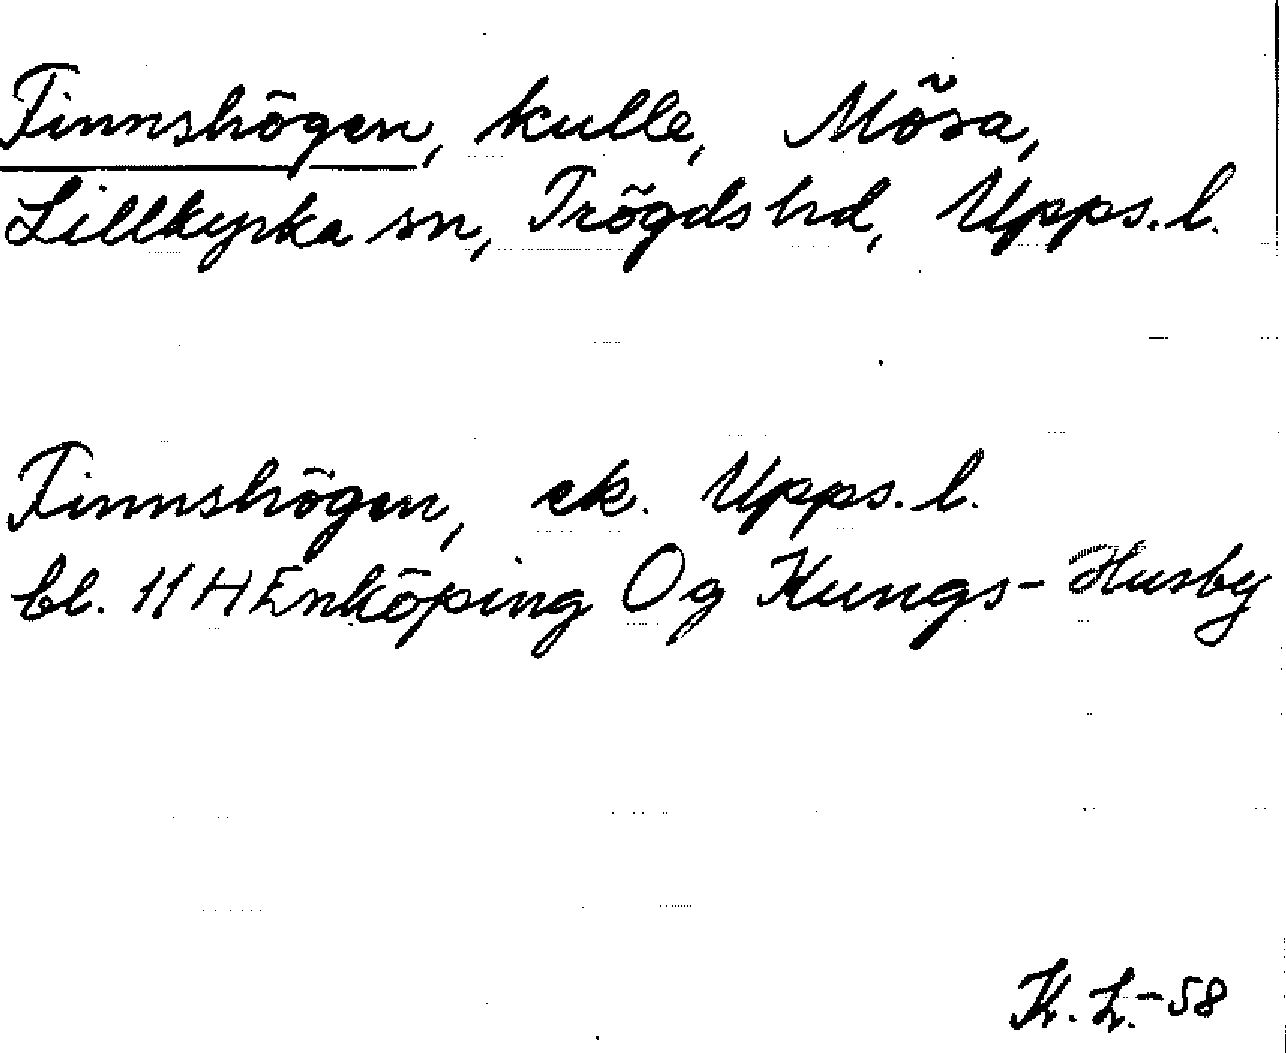 Finnshögen, kulle, Mösa,
Lillkyrka sn, Trögds hd, Upps. l.
Finnshögen, ek. Upps. l.
bl. 11 H Enköping Og Kungs-Husby
K. L. -58